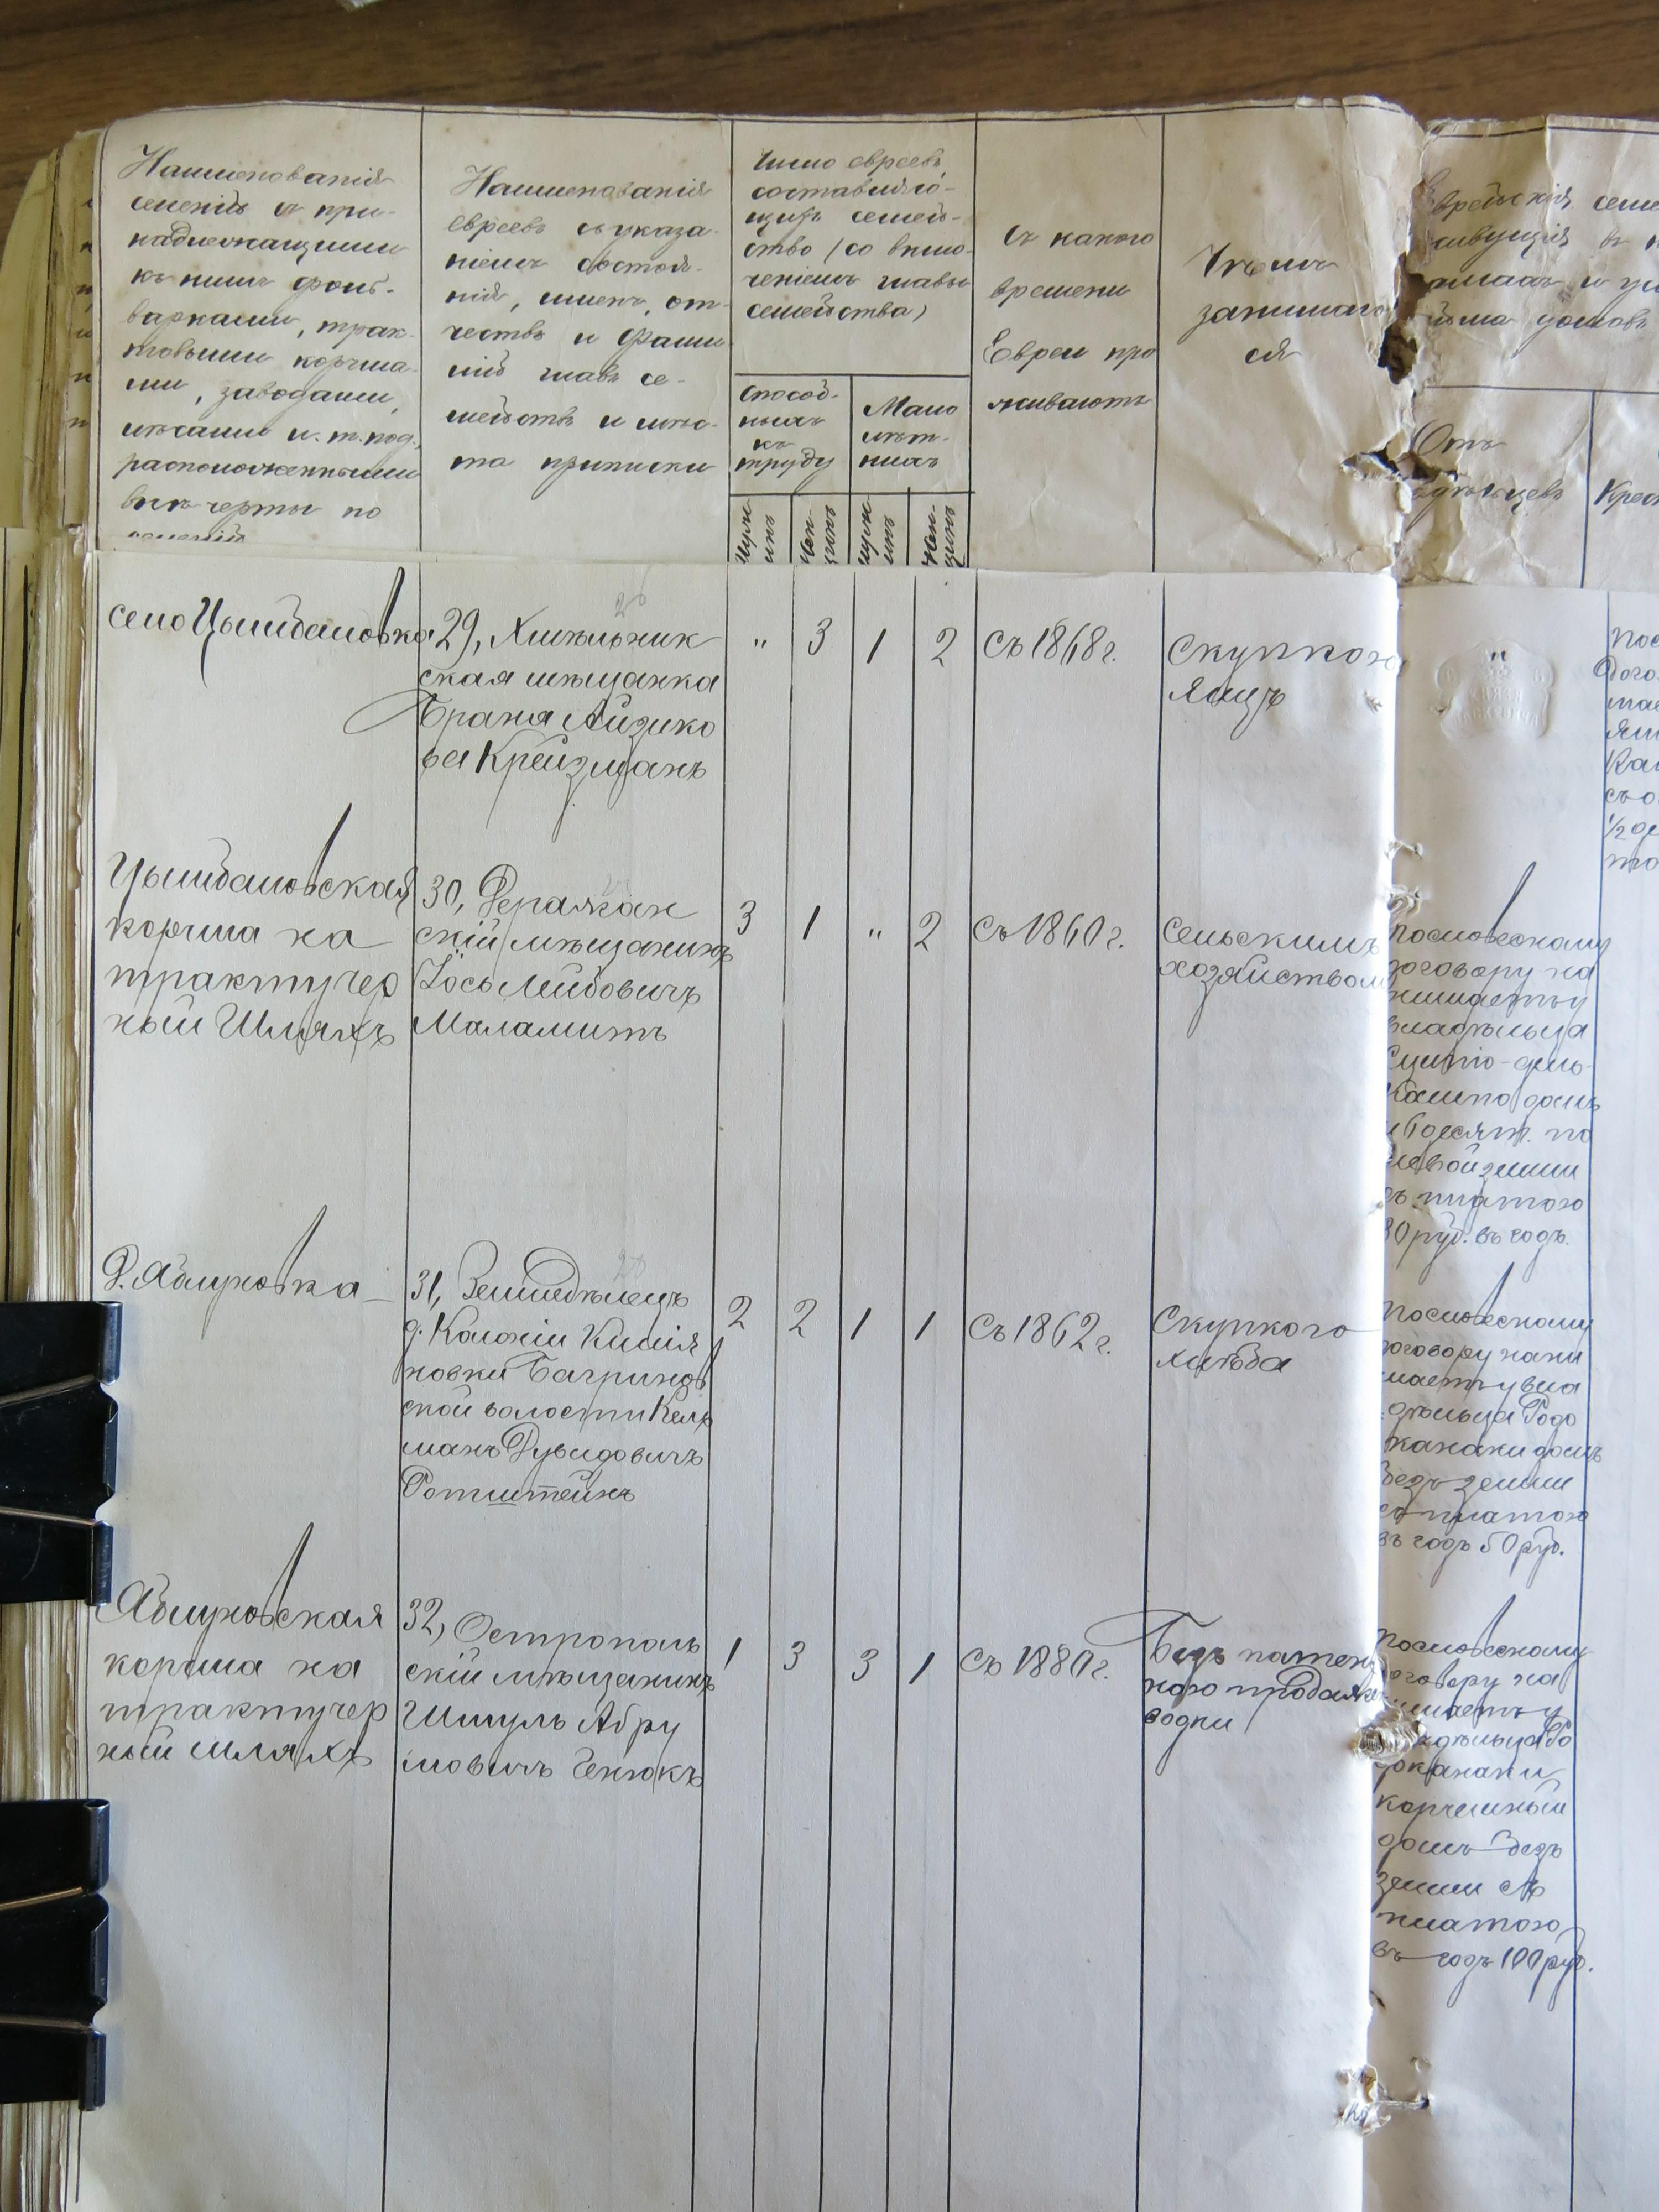 Наименованія
селеній съ при-
надлежащими
къ нимъ фоль-
варками, трак-
товыми корчма-
ми, заводами,
лѣсами и. т. под.
расположенными
внѣ черты по
селеній
Наименованія
евреевъ съ указа-
ніемъ состоя-
нія, именъ, от-
чествъ и фами
лій главъ се-
мействъ и мѣс-
та приписки
Число евреевъ,
составляю-
щихъ семей-
ство (со вклю-
ченіемъ главы
семейства)
Способ-
ныхъ
къ
труду
Мало
лѣт-
нихъ
муж
чинъ
жен-
щинъ
муж
чинъ
жен-
щинъ
Съ какого
времени
Евреи про
живаютъ
Чѣмъ
занимаю
ся
Еврейскія семе
живущія в
Отъ
Крест
село Цымбаловка
29, Хмѣльник
ская мѣщанка
Браня Айзико
ва Крейзманъ
" 3 1 2
съ 1868 г.
Скупкою
Яицъ
"
Цымбаловская
корчма на
трактѣ чер
ный Шляхъ
30, Деражнян
скій мѣщанинъ
Іось Лейбовичъ
Маламитъ
3 1 " 2
съ 1860 г.
Сельскимъ
хозяйством
По словесному
договору на
нимаетъ у
владѣльца
дом
6 десят. по
левой земли
съ платою
80 руб. въ годъ.
Д. Яблуновка
31, Земледѣлецъ
д. Колоніи Килія
новки Багринов
ской волости Кель
манъ Дувидовичъ
Ротштейнъ
2 2 1 1
съ 1862 г.
Скупкого
хлѣба
По словесному
договору нани
маетъ у вла
дѣльца Родо
канаки домъ
безъ земли
съ платою
въ годъ 50 руб.
Яблуновская
корчма на
трактѣ чер
ный шляхъ
32, Острополь
скій мѣщанинъ
Шмуль Абру
мовичъ Ченюкъ
1 3 3 1
съ 1880 г.
Безъ патен
ною продаже
водки
По словесному
договору на
нимаетъ у
владѣльца Ро
доканаки
корчемный
домъ безъ
земли съ
платою
въ годъ 100 руб.